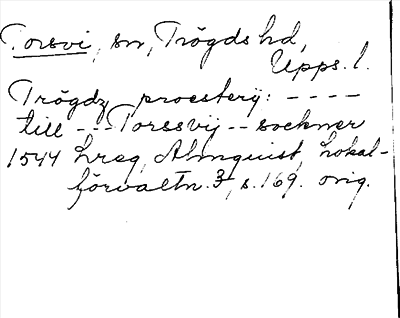 Torsvi, sn, Trögds hd,
Upps. l.
Trögdz proesterij: ----
till --- Torssvij -- sockner
1544 hreg, Almquist, Lokal-
förvaltn. 3, s. 169. orig.